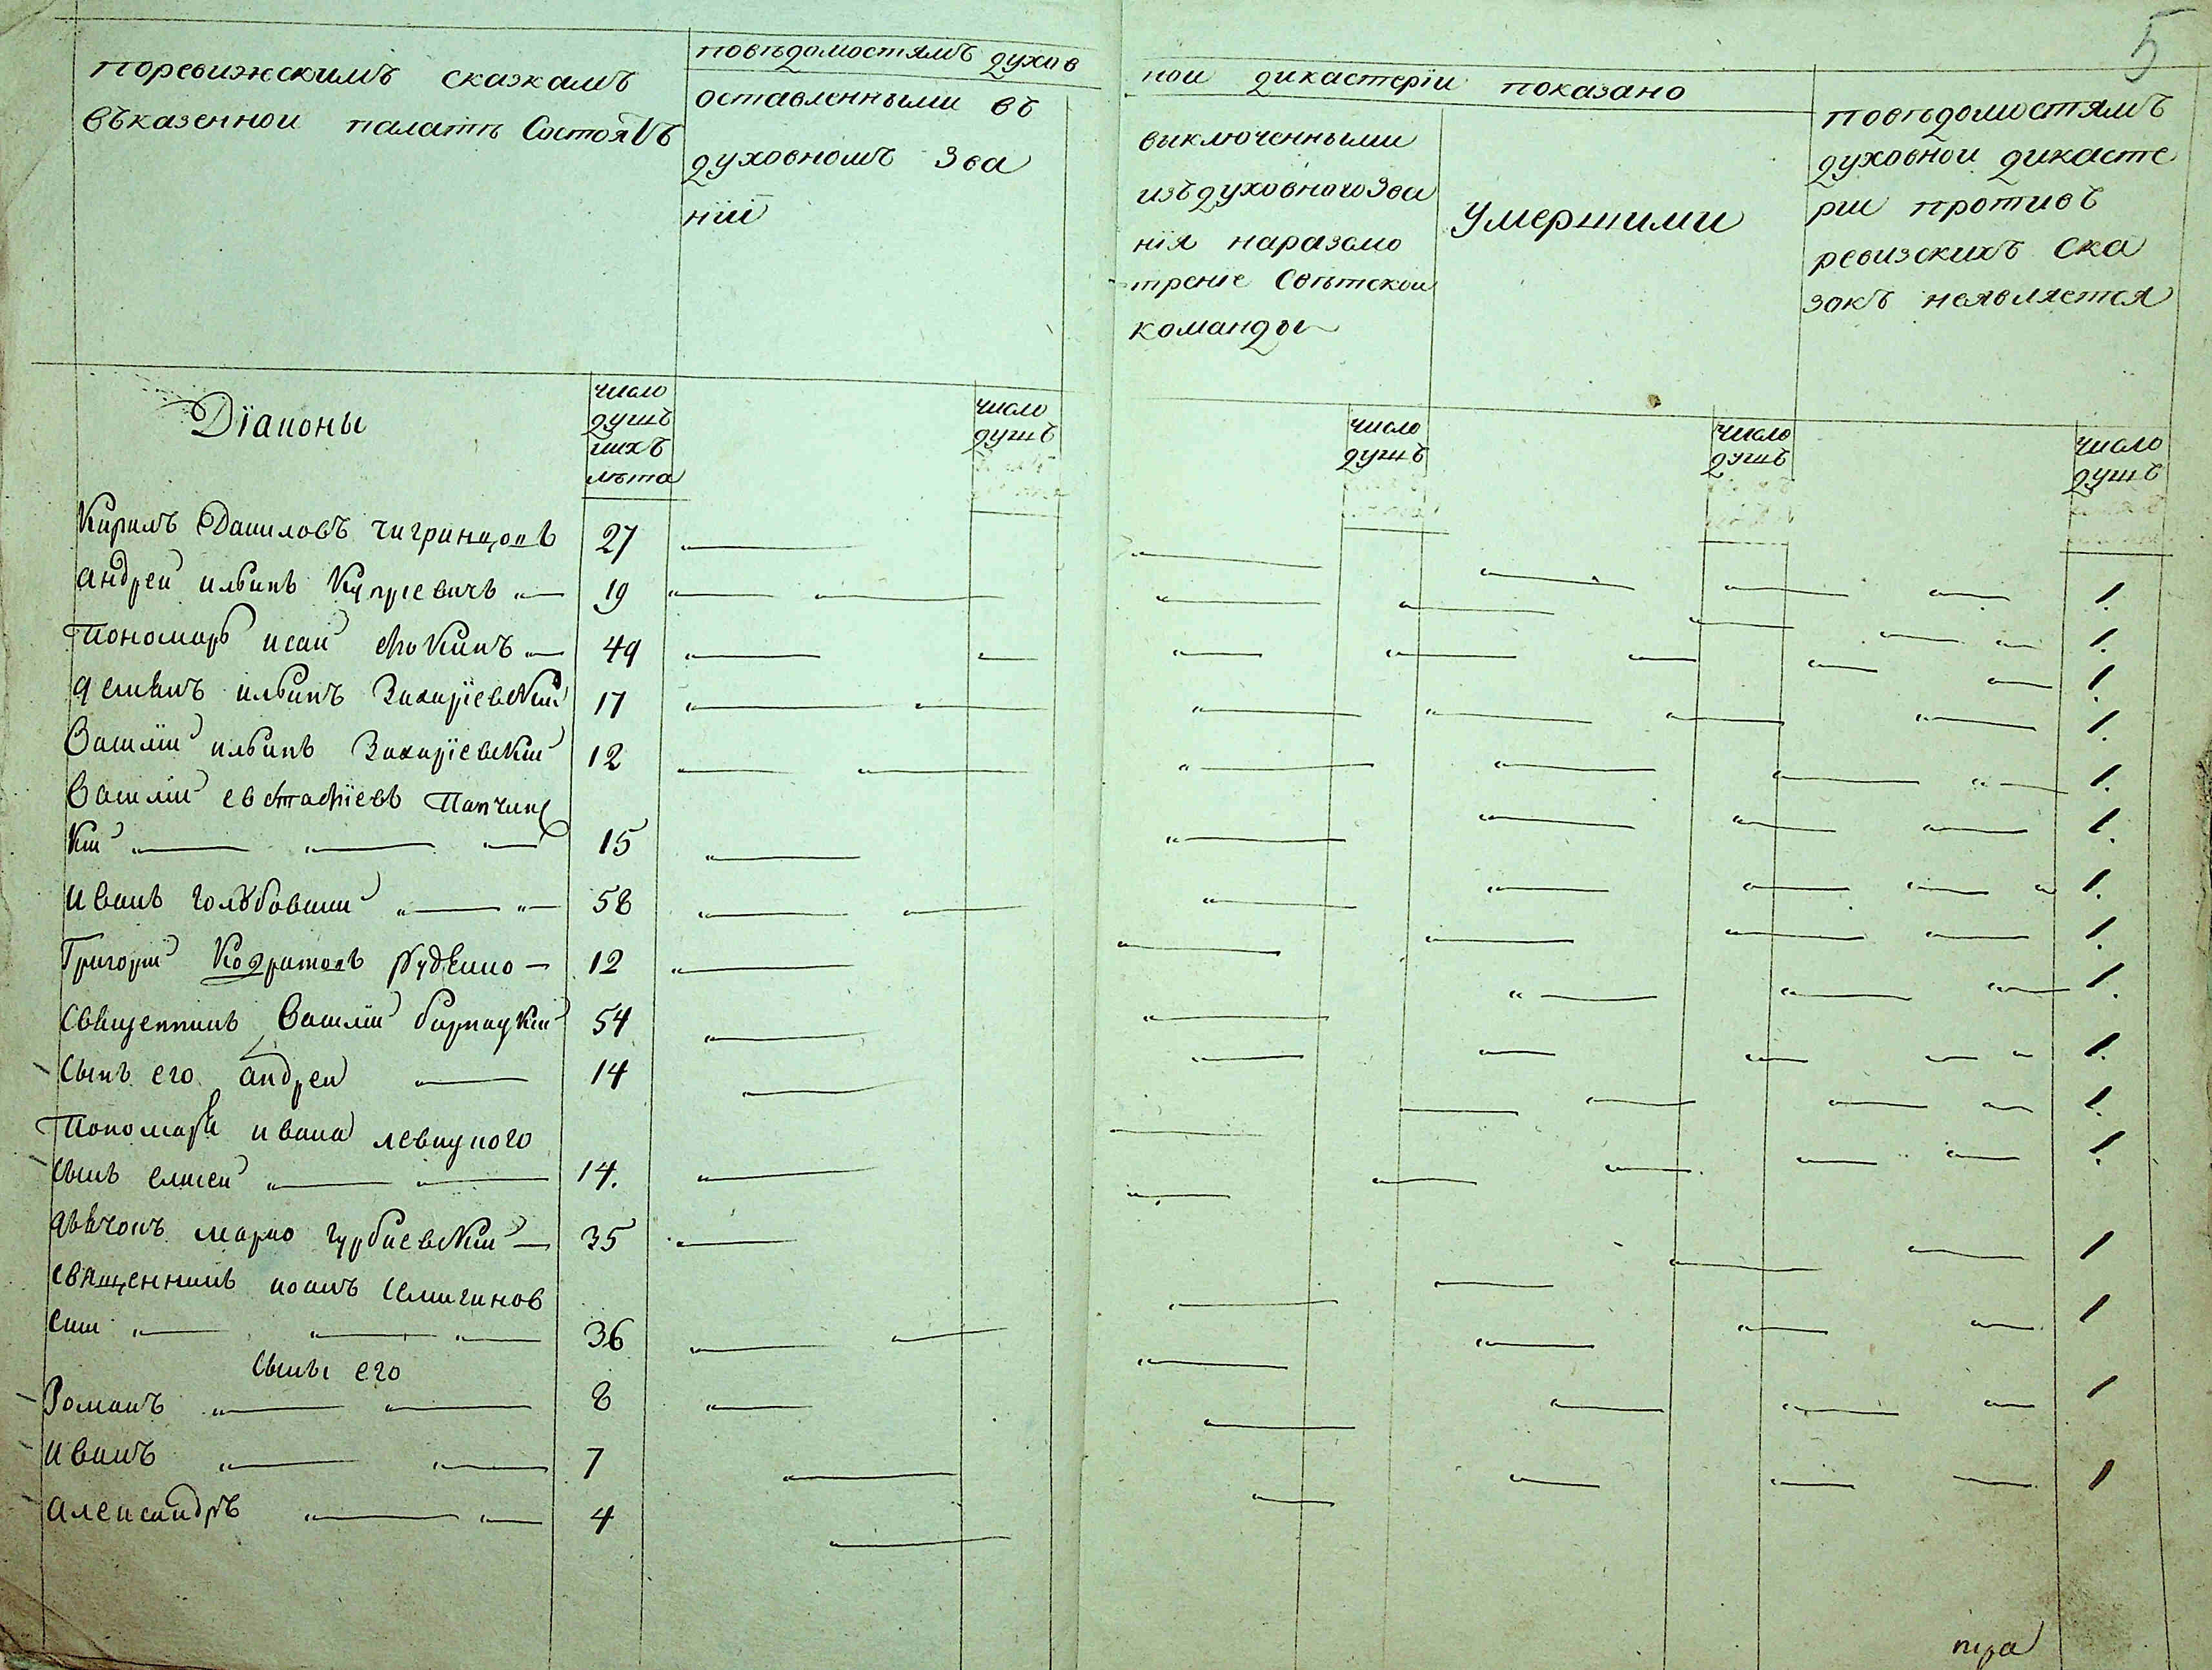 5
поревижскимъ сказкамъ
въказенной палатѣ Состоятъ
повѣдомостямъ духов
ной дикастеріи показано
оставленными въ
духовномъ Зва
ніи
виключенными
изъ духовного Зва
нія наразсмо
трение Свѣтской
команды
Умершими
повѣдомостямъ
духовной дикасте
рии противъ
ревизскихъ ска
зокъ неявляется
Діаконы
число
душъ
ихъ
лѣта
число
душъ
число
душъ
число
душъ
число
душъ
Кирилъ Даниловъ чигринцовъ 27 1.
андрей ильинъ Купріевичъ 19 1.
Пономарь исаий 49 1.
ильинъ Захаріевский 17 1.
Василій ильинъ Захаріевский 12 1.
Василій евстафіевъ Папчинс
кий 15 1.
иванъ голубовский 58 1.
Григорий Кодратовъ 12 1.
священникъ Василій 54 1.
сынъ его андрей 14 1.
Пономаря ивана левицкого
сынъ елисей 14. 1.
дьячокъ марко гурбиевский 35 1.
священникъ иоанъ Семигинов
ский 36 1
сыны его
Романъ 8 1
иванъ 7 1
александръ 4 1